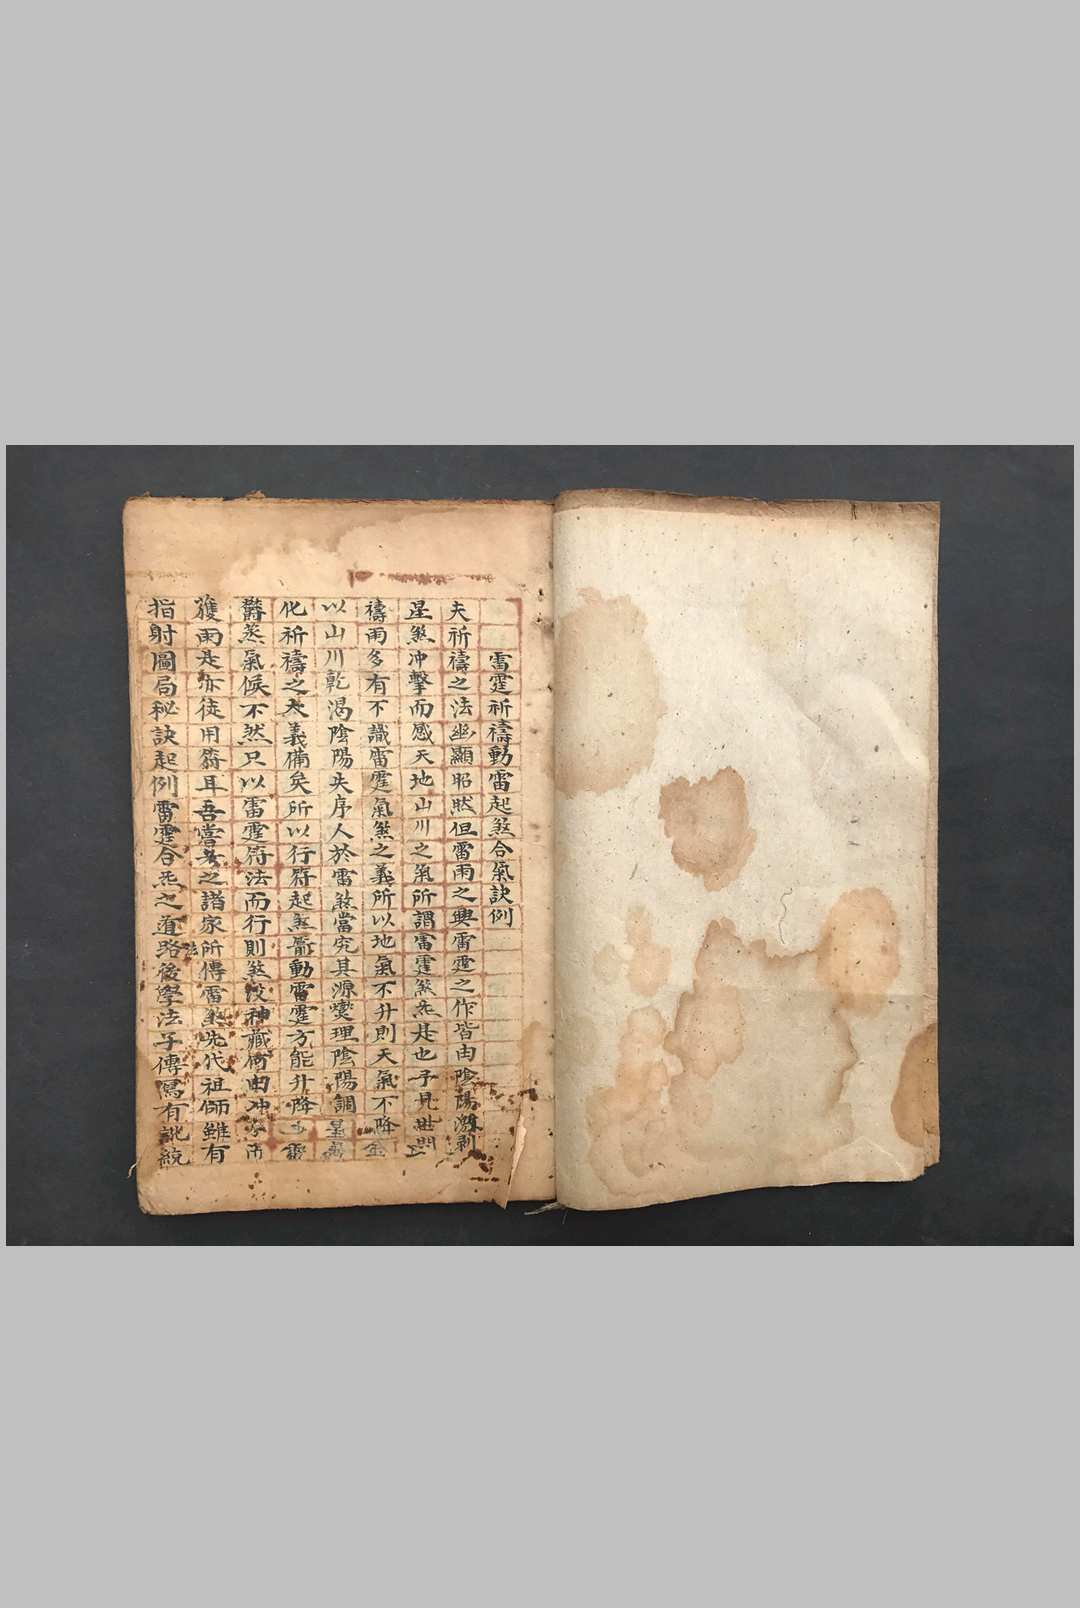 雷霆祈禱動雷起煞合氣訣例
夫祈禱之法幽顯昭然但雷雨之興雷霆之作皆由陰陽激剥
星煞冲擊而感天地山川之氣所謂雷霆煞炁是也予見世間
禱雨多有不識雷霆氣煞之義所以地氣不升則天氣不降
以山川乾渴陰陽失序人於雷煞當究其源燮理陰陽調
化祈禱之大義備矣所以行符起煞動雷霆方能升降
欝蒸氣候不然只以雷霆符法而行則煞没神藏何由冲
獲雨是亦徒用符耳吾嘗之諸家所傳雷法先代祖師雖有
指射圖局秘訣起例雷霆合炁之道路後學法子傳寫有訛